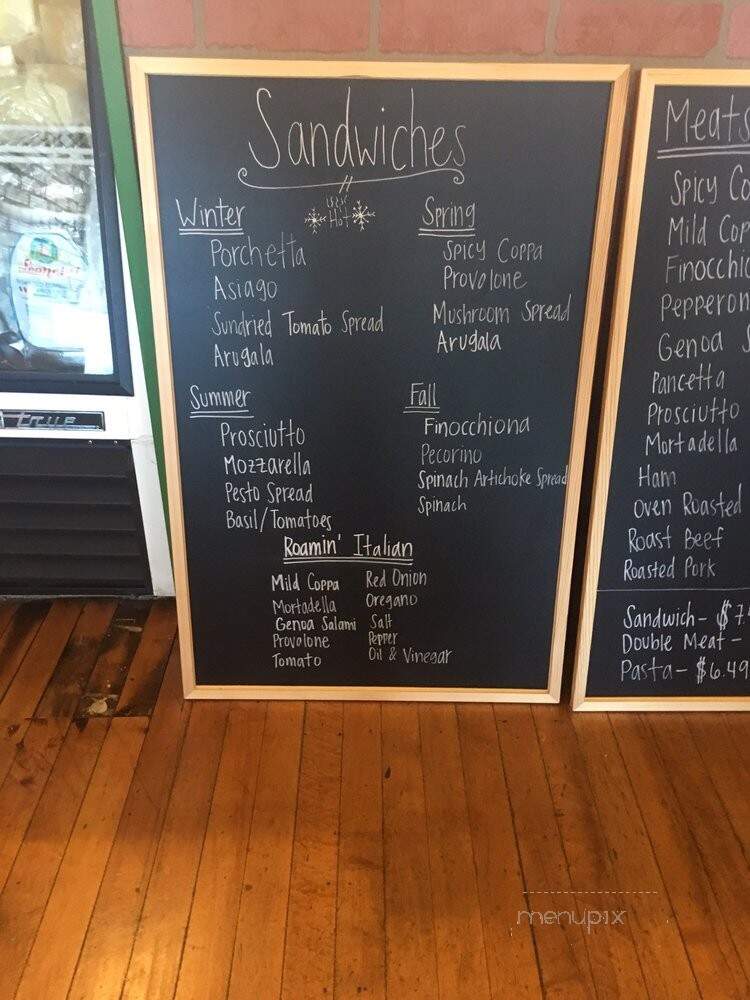 Sandwiches
Winter
Hot
Porchetta
Asiago
Sundried Tomato Spread
Arugala
Spring
Spicy Coppa
Provolone
Mushroom Spread
Arugala
Summer
Prosciutto
Mozzarella
Pesto Spread
Basil/Tomatoes
Fall
Finocchiona
Pecorino
Spinach Artichoke Spread
Spinach
Roamin' Italian
Mild Coppa
Mortadella
Genoa Salami
Provolone
Tomato
Red Onion
Oregano
Salt
Pepper
Oil & Vinegar
Meats
Spicy Co
Mild Cop
Finocchio
Pepperon
Genoa S
Pancetta
Prosciutto
Mortadella
Ham
Oven Roasted
Roast Beef
Roasted Pork
Sandwich- $7.
Double Meat -
Pasta- $6.49
true
menupix